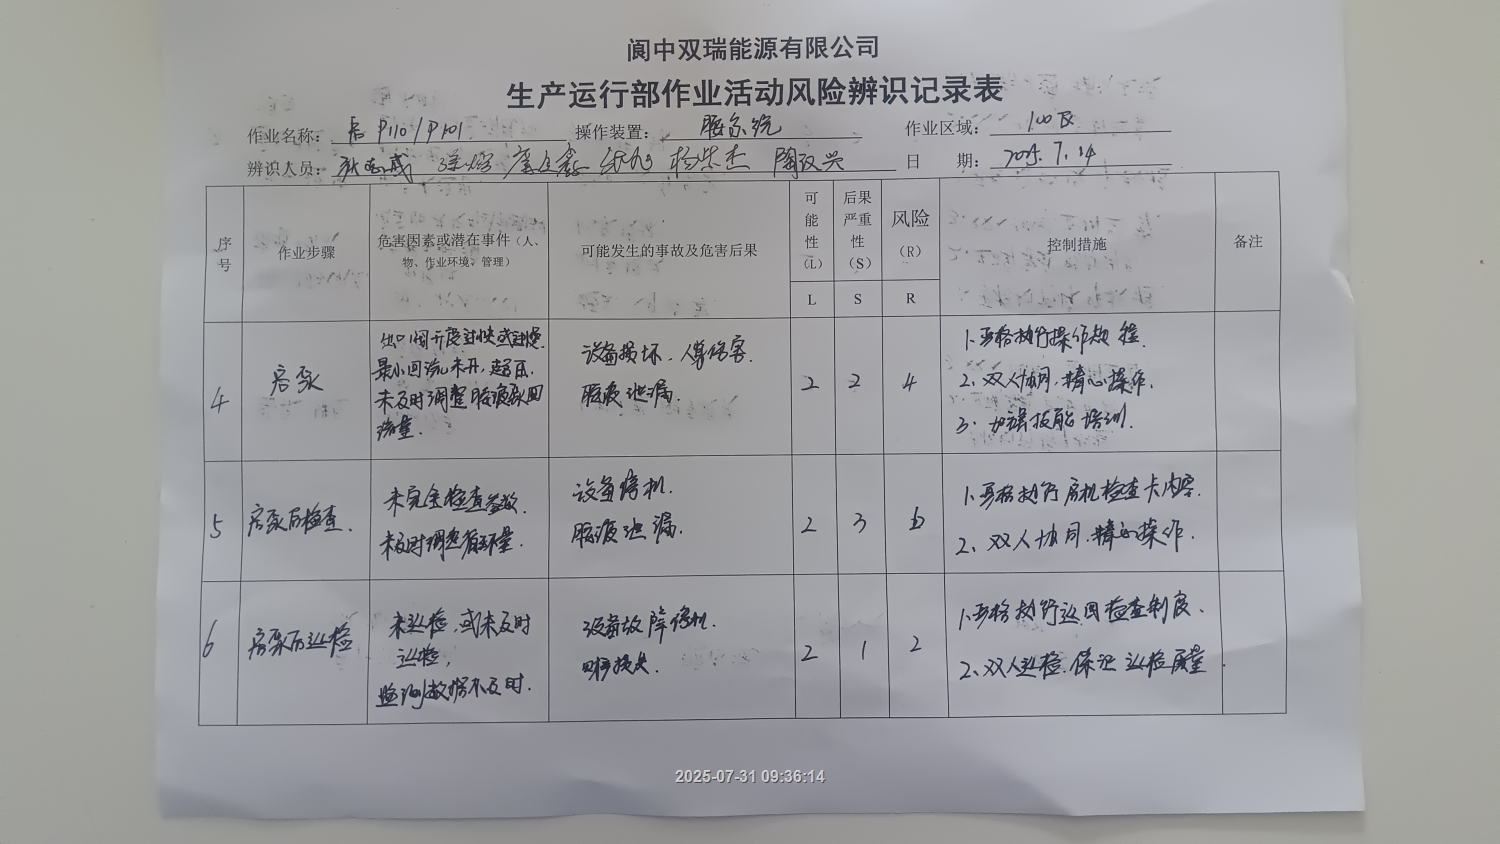 阆中双瑞能源有限公司
生产运行部作业活动风险辨识记录表
作业名称： 启 P110/P101 操作装置： 胺系统 作业区域： 100区
辨识人员： 杨荣杰 陶汉兴 日 期： 2025.7.14
序号 作业步骤 危害因素或潜在事件（人、物、作业环境、管理） 可能发生的事故及危害后果 可能性（L） 后果严重性（S） 风险（R） 控制措施 备注
L S R
4 启泵 出口阀开度过快或过慢. 最小回流未开，超压. 未及时调整胺液泵回流量. 设备损坏. 人身伤害. 胺液泄漏. 2 2 4 1.严格执行操作规程. 2.双人协同.精心操作. 3.加强技能培训.
5 启泵后检查. 未完全检查参数. 未及时调整循环量. 设备停机. 胺液泄漏. 2 3 6 1.严格执行启机检查卡内容. 2.双人协同.精心操作.
6 启泵后巡检 未巡检.或未及时巡检, 监测数据不及时. 设备故障停机. 财产损失. 2 1 2 1.严格执行巡回检查制度. 2.双人巡检.保证巡检质量.
2025-07-31 09:36:14